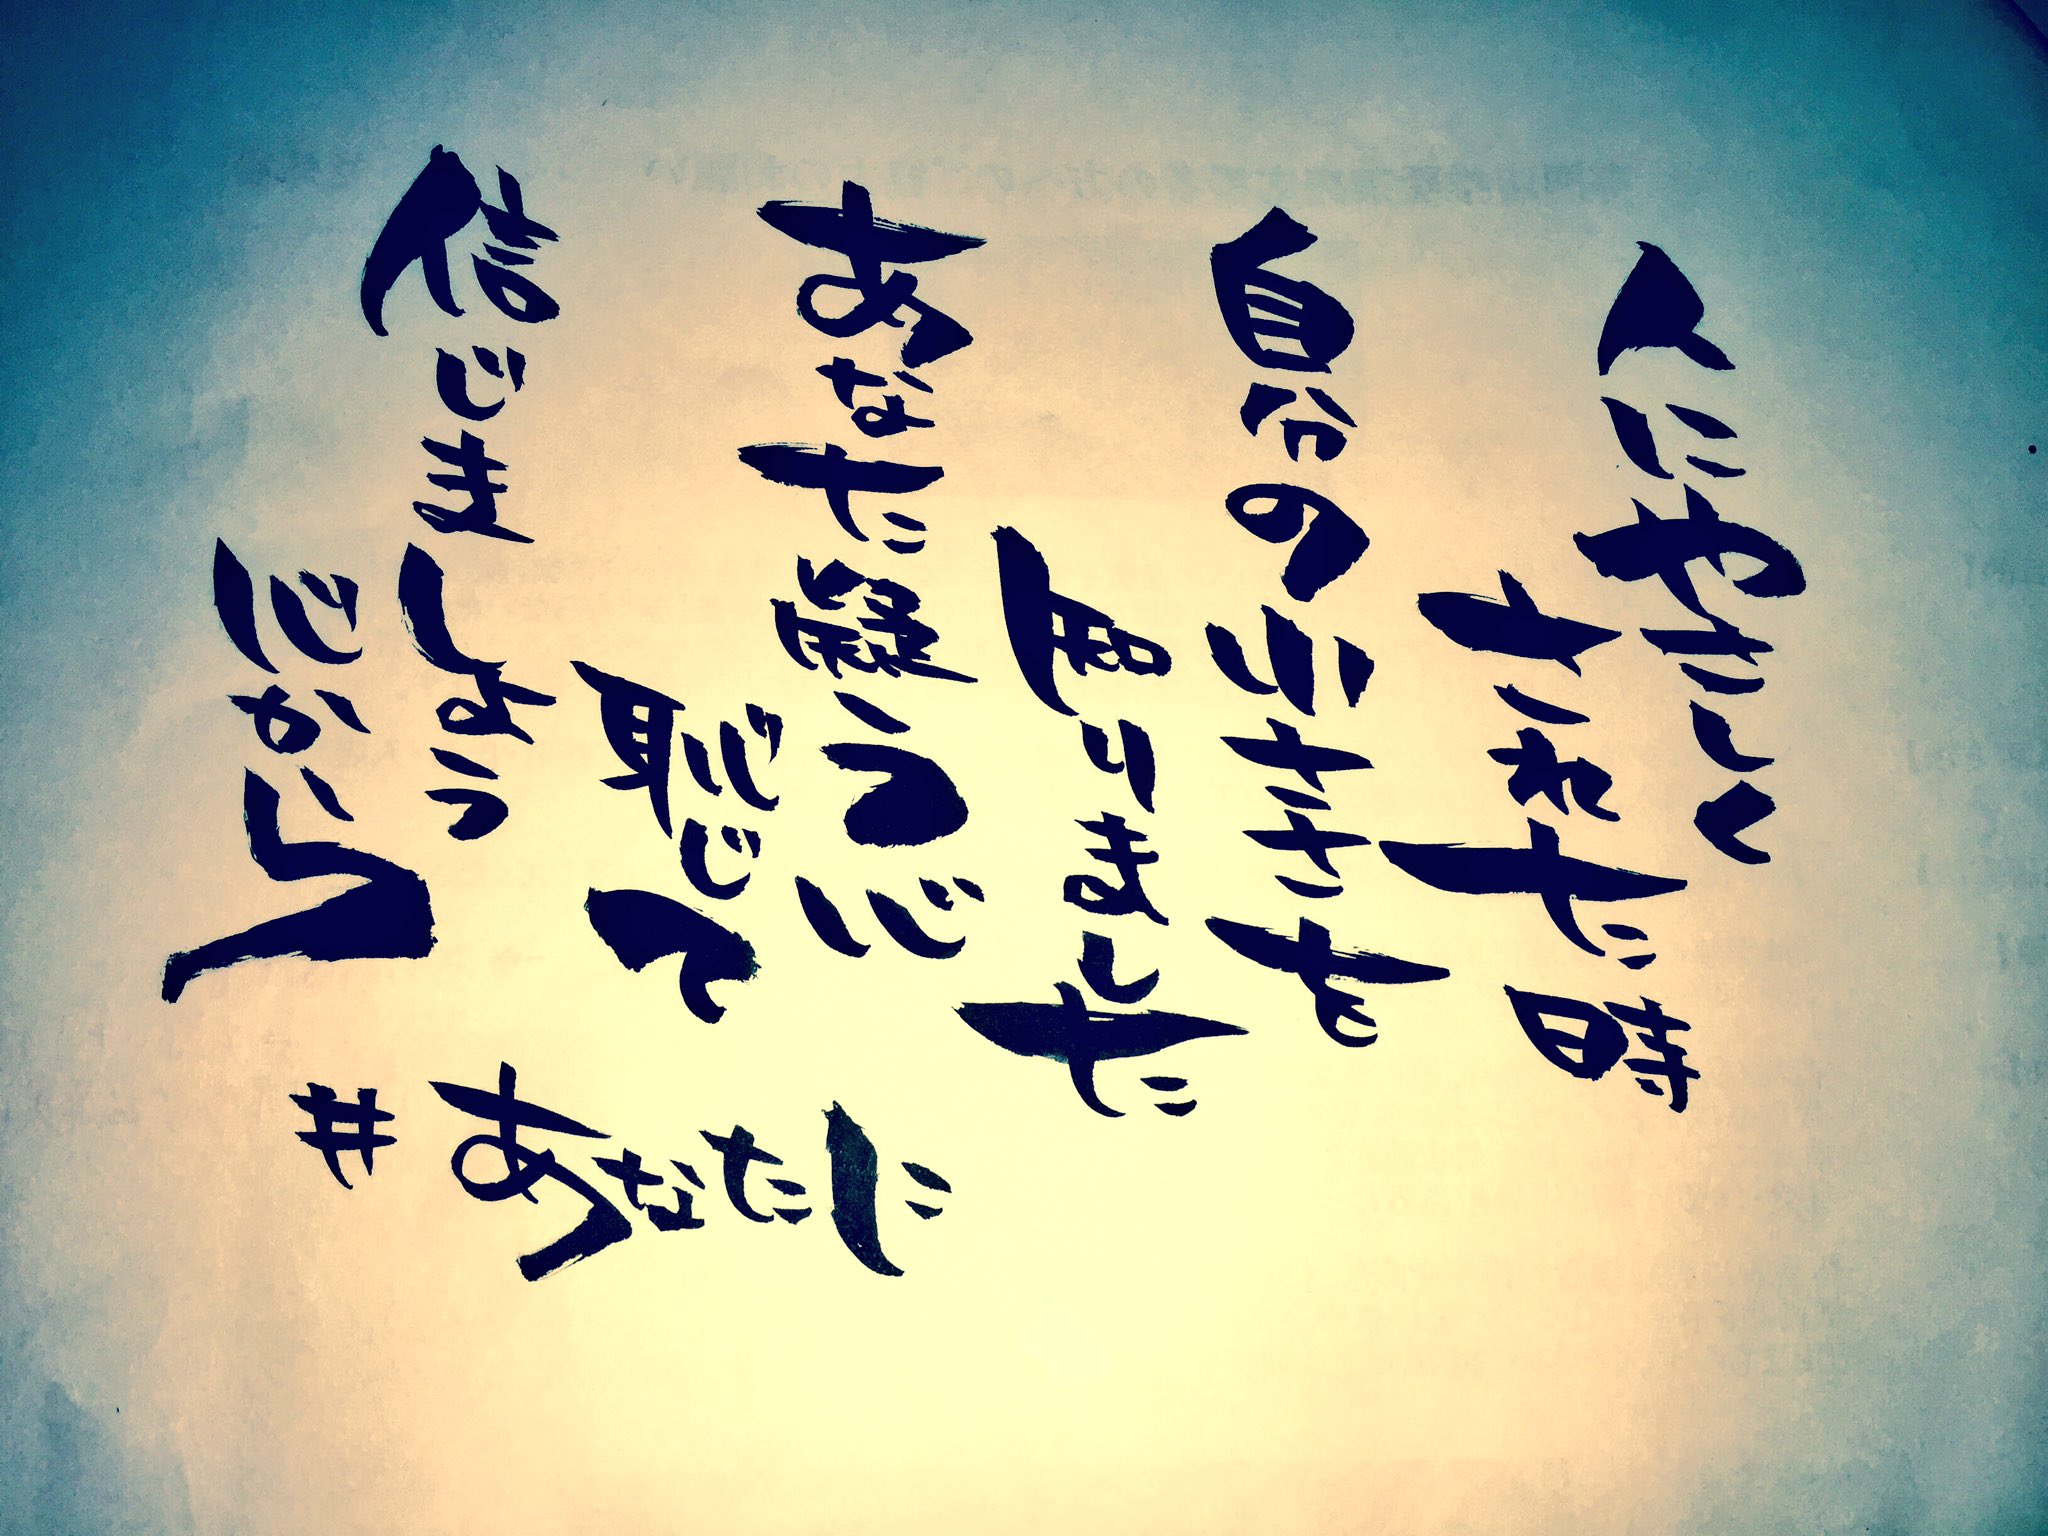 人にやさしく
された時
自分の小ささを
知りました
あなた疑う心
恥じて
信じましょう
心から
#あなたに